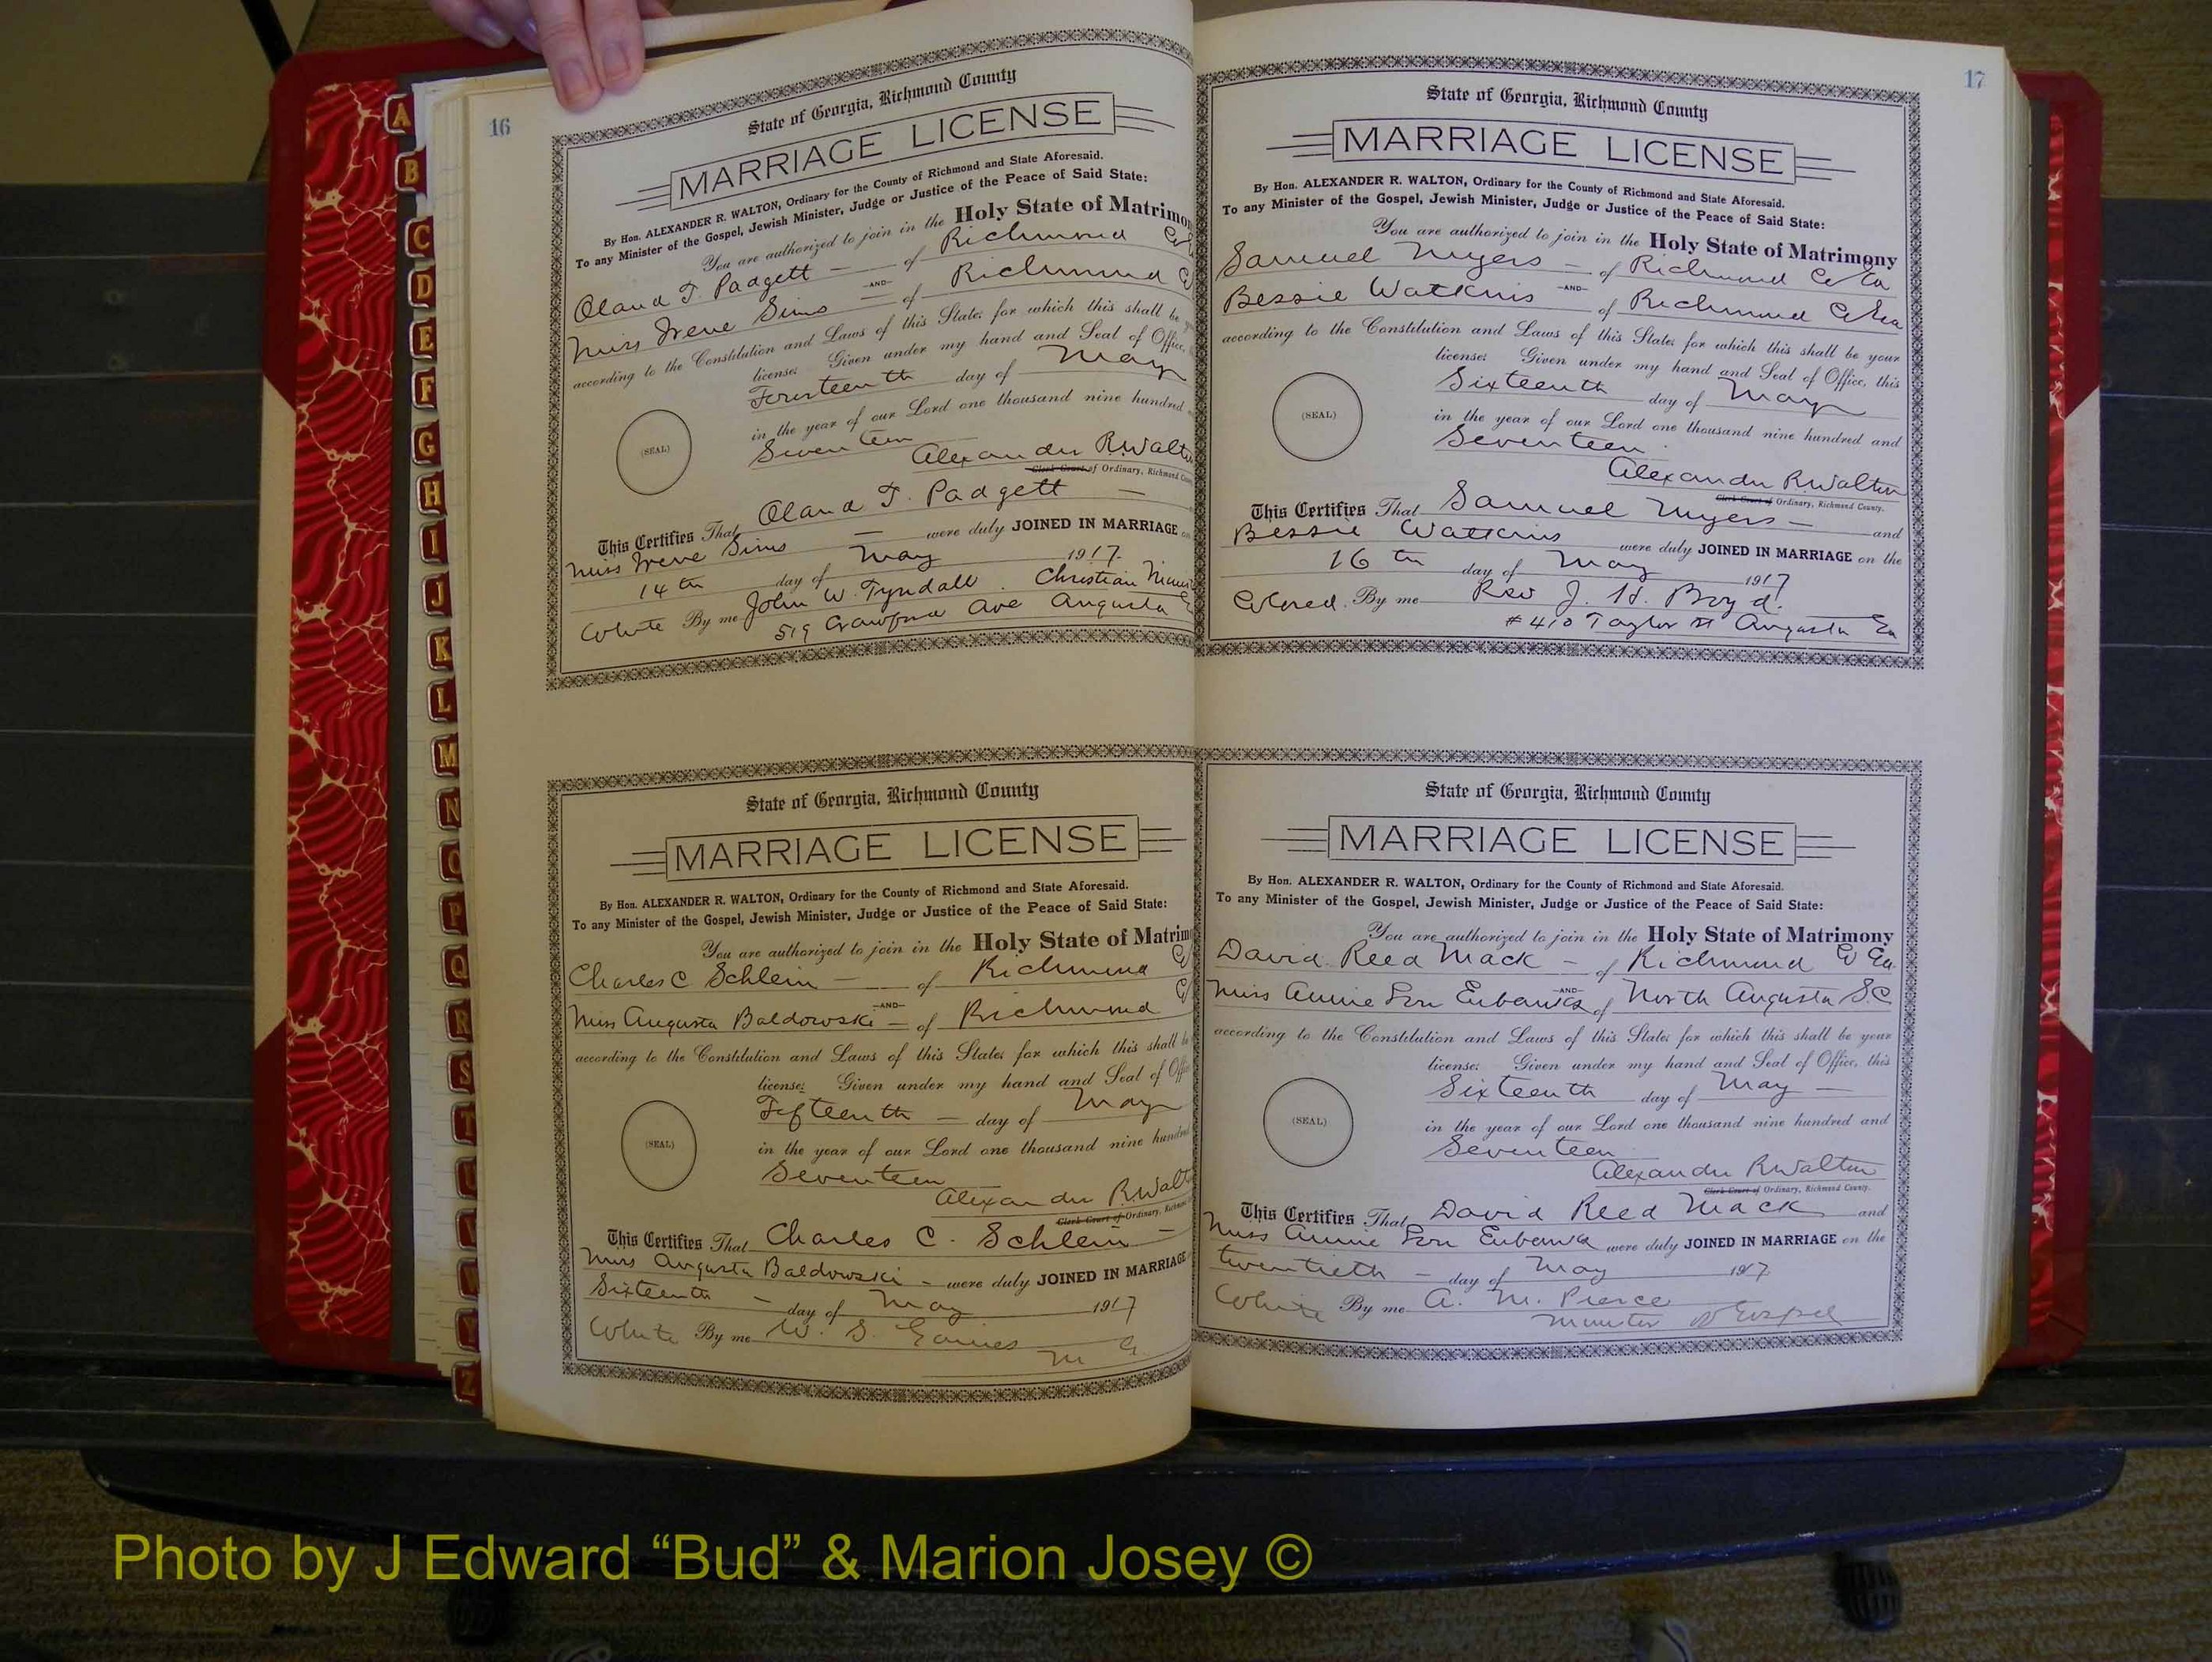 A
B
C
D
E
F
G
H
I
J
K
L
M
N
O
P
Q
R
S
T
U
V
W
Y
Z
16
State of Georgia, Richmond County
MARRIAGE LICENSE
By Hon. ALEXANDER R. WALTON, Ordinary for the County of Richmond and State Aforesaid.
To any Minister of the Gospel, Jewish Minister, Judge or Justice of the Peace of Said State:
You are authorized to join in the Holy State of Matrimon
Oland T. Padgett — of Richmond Co
—AND—
Miss Irene Sims — of Richmond C
according to the Constitution and Laws of this State; for which this shall be
license: Given under my hand and Seal of Office,
Fourteenth day of May
in the year of our Lord one thousand nine hundred
Seventeen
Alexander R. Walton
Clerk Court of Ordinary, Richmond
This Certifies That Oland T. Padgett —
Miss Irene Sims — were duly JOINED IN MARRIAGE
14th day of May 1917.
White By me John W. Tyndall. Christian
519 Crawford Ave Augusta
State of Georgia, Richmond County
MARRIAGE LICENSE
By Hon. ALEXANDER R. WALTON, Ordinary for the County of Richmond and State Aforesaid.
To any Minister of the Gospel, Jewish Minister, Judge or Justice of the Peace of Said State:
You are authorized to join in the Holy State of Matrim
Charles C. Schlein — of Richmond Co
—AND—
Miss Augusta Baldowski — of Richmond C
according to the Constitution and Laws of this State; for which this shall b
license: Given under my hand and Seal of Offi
Fifteenth — day of May
in the year of our Lord one thousand nine hundred
Seventeen
Alexander R. Walt
Clerk Court of Ordinary, Richmon
This Certifies That Charles C. Schlein —
Miss Augusta Baldowski — were duly JOINED IN MARRIAGE
Sixteenth — day of May 1917
White By me W. S. Gaines
M G
(SEAL)
(SEAL)
17
State of Georgia, Richmond County
MARRIAGE LICENSE
By Hon. ALEXANDER R. WALTON, Ordinary for the County of Richmond and State Aforesaid.
To any Minister of the Gospel, Jewish Minister, Judge or Justice of the Peace of Said State:
You are authorized to join in the Holy State of Matrimony
Samuel Myers — of Richmond Co Ga
—AND—
Bessie Watkins of Richmond Co Ga
according to the Constitution and Laws of this State; for which this shall be your
license: Given under my hand and Seal of Office, this
Sixteenth day of May
(SEAL)
in the year of our Lord one thousand nine hundred and
Seventeen
Alexander R. Walton
Clerk Court of Ordinary, Richmond County.
This Certifies That Samuel Myers — and
Bessie Watkins were duly JOINED IN MARRIAGE on the
16th day of May 1917
Colored. By me Rev J. H. Boyd.
#410 Taylor St Augusta Ga
State of Georgia, Richmond County
MARRIAGE LICENSE
By Hon. ALEXANDER R. WALTON, Ordinary for the County of Richmond and State Aforesaid.
To any Minister of the Gospel, Jewish Minister, Judge or Justice of the Peace of Said State:
You are authorized to join in the Holy State of Matrimony
David Reed Mack — of Richmond Co Ga.
—AND—
Miss Annie Lou Eubanks of North Augusta S.C
according to the Constitution and Laws of this State; for which this shall be your
license: Given under my hand and Seal of Office, this
Sixteenth day of May —
(SEAL)
in the year of our Lord one thousand nine hundred and
Seventeen
Alexander R. Walton
Clerk Court of Ordinary, Richmond County.
This Certifies That David Reed Mack and
Miss Annie Lou Eubanks were duly JOINED IN MARRIAGE on the
twentieth — day of May 1917
White By me A. M. Pierce
Minister of Gospel
Photo by J Edward “Bud” & Marion Josey ©